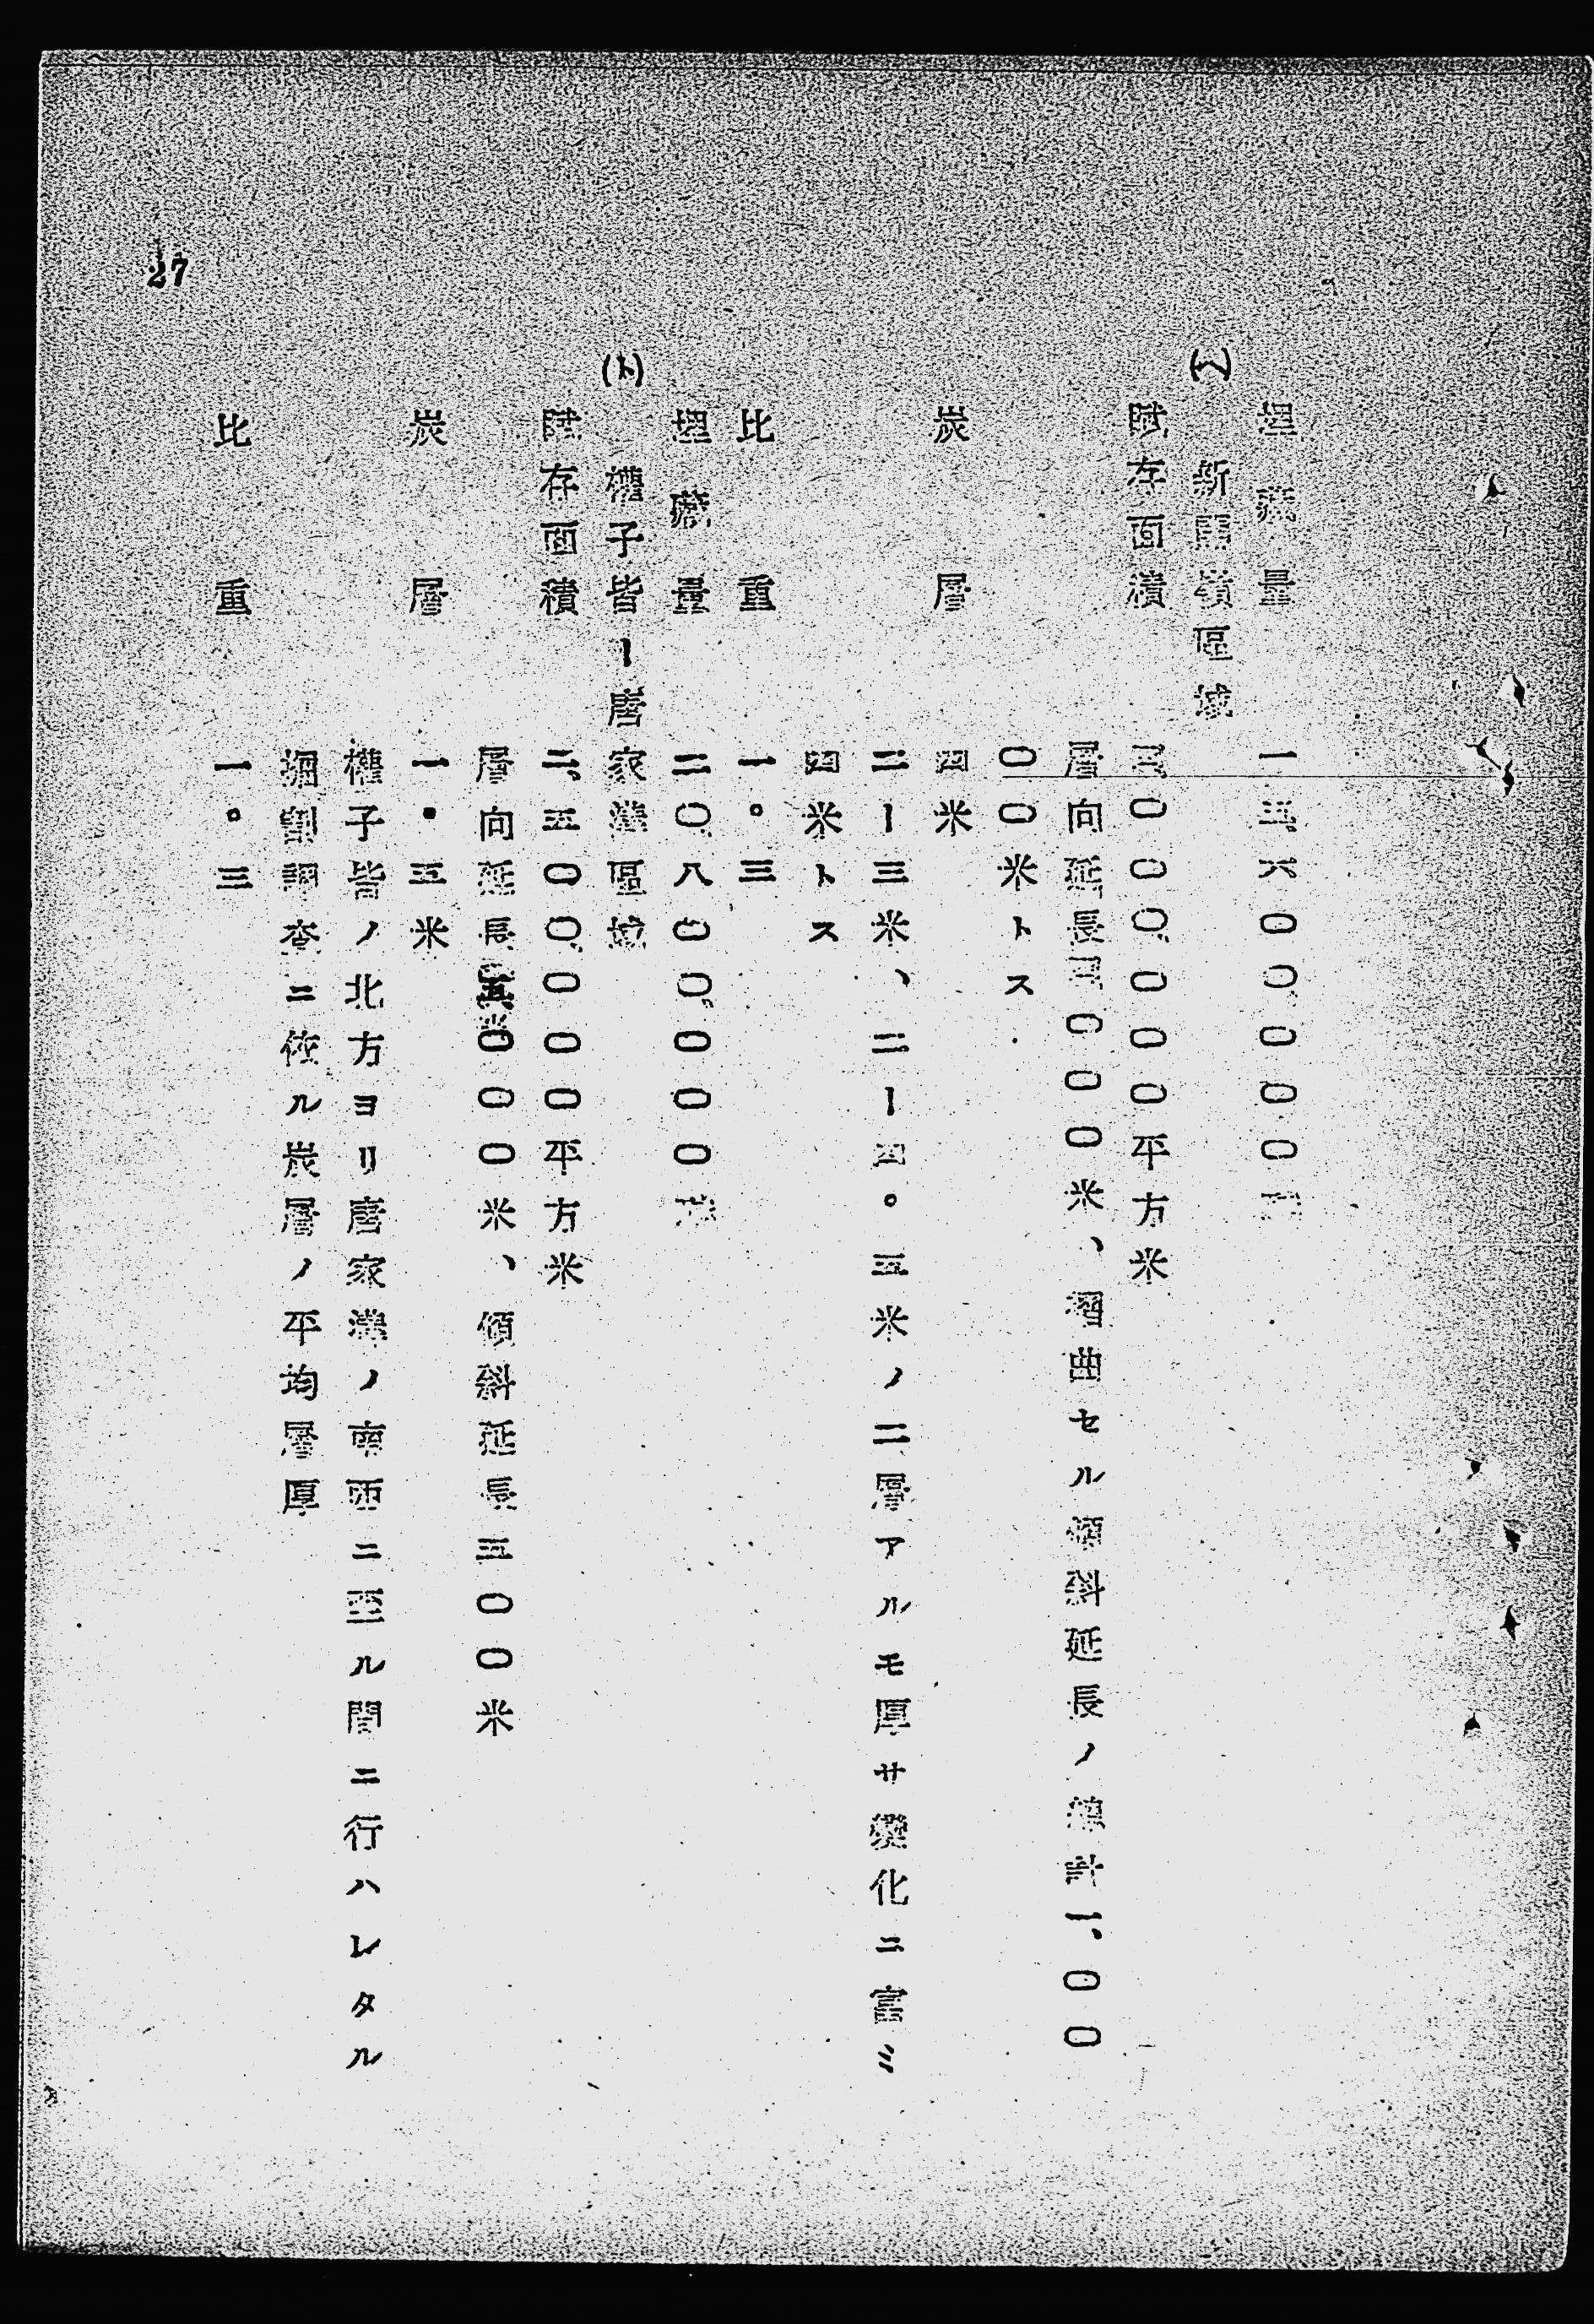 埋藏量 一五、六〇〇、〇〇〇瓲
(ヘ) 新開嶺區域
賦存面積 四〇〇〇、〇〇〇平方米
層向延長四〇〇〇米、褶曲セル傾斜延長ノ總計一、〇〇
〇〇米トス
炭層 四米
二ー三米、二ー四。五米ノ二層アルモ厚サ變化ニ富ミ
四米トス
比重 一。三
埋藏量 二〇、八〇〇、〇〇〇瓲
(ト) 權子皆ー唐家溝區域
賦存面積 二、五〇〇、〇〇〇平方米
層向延長五〇〇〇米、傾斜延長五〇〇米
炭層 一・五米
權子皆ノ北方ヨリ唐家溝ノ南西ニ至ル間ニ行ハレタル
掘割調査ニ依ル炭層ノ平均層厚
比重 一。三
27